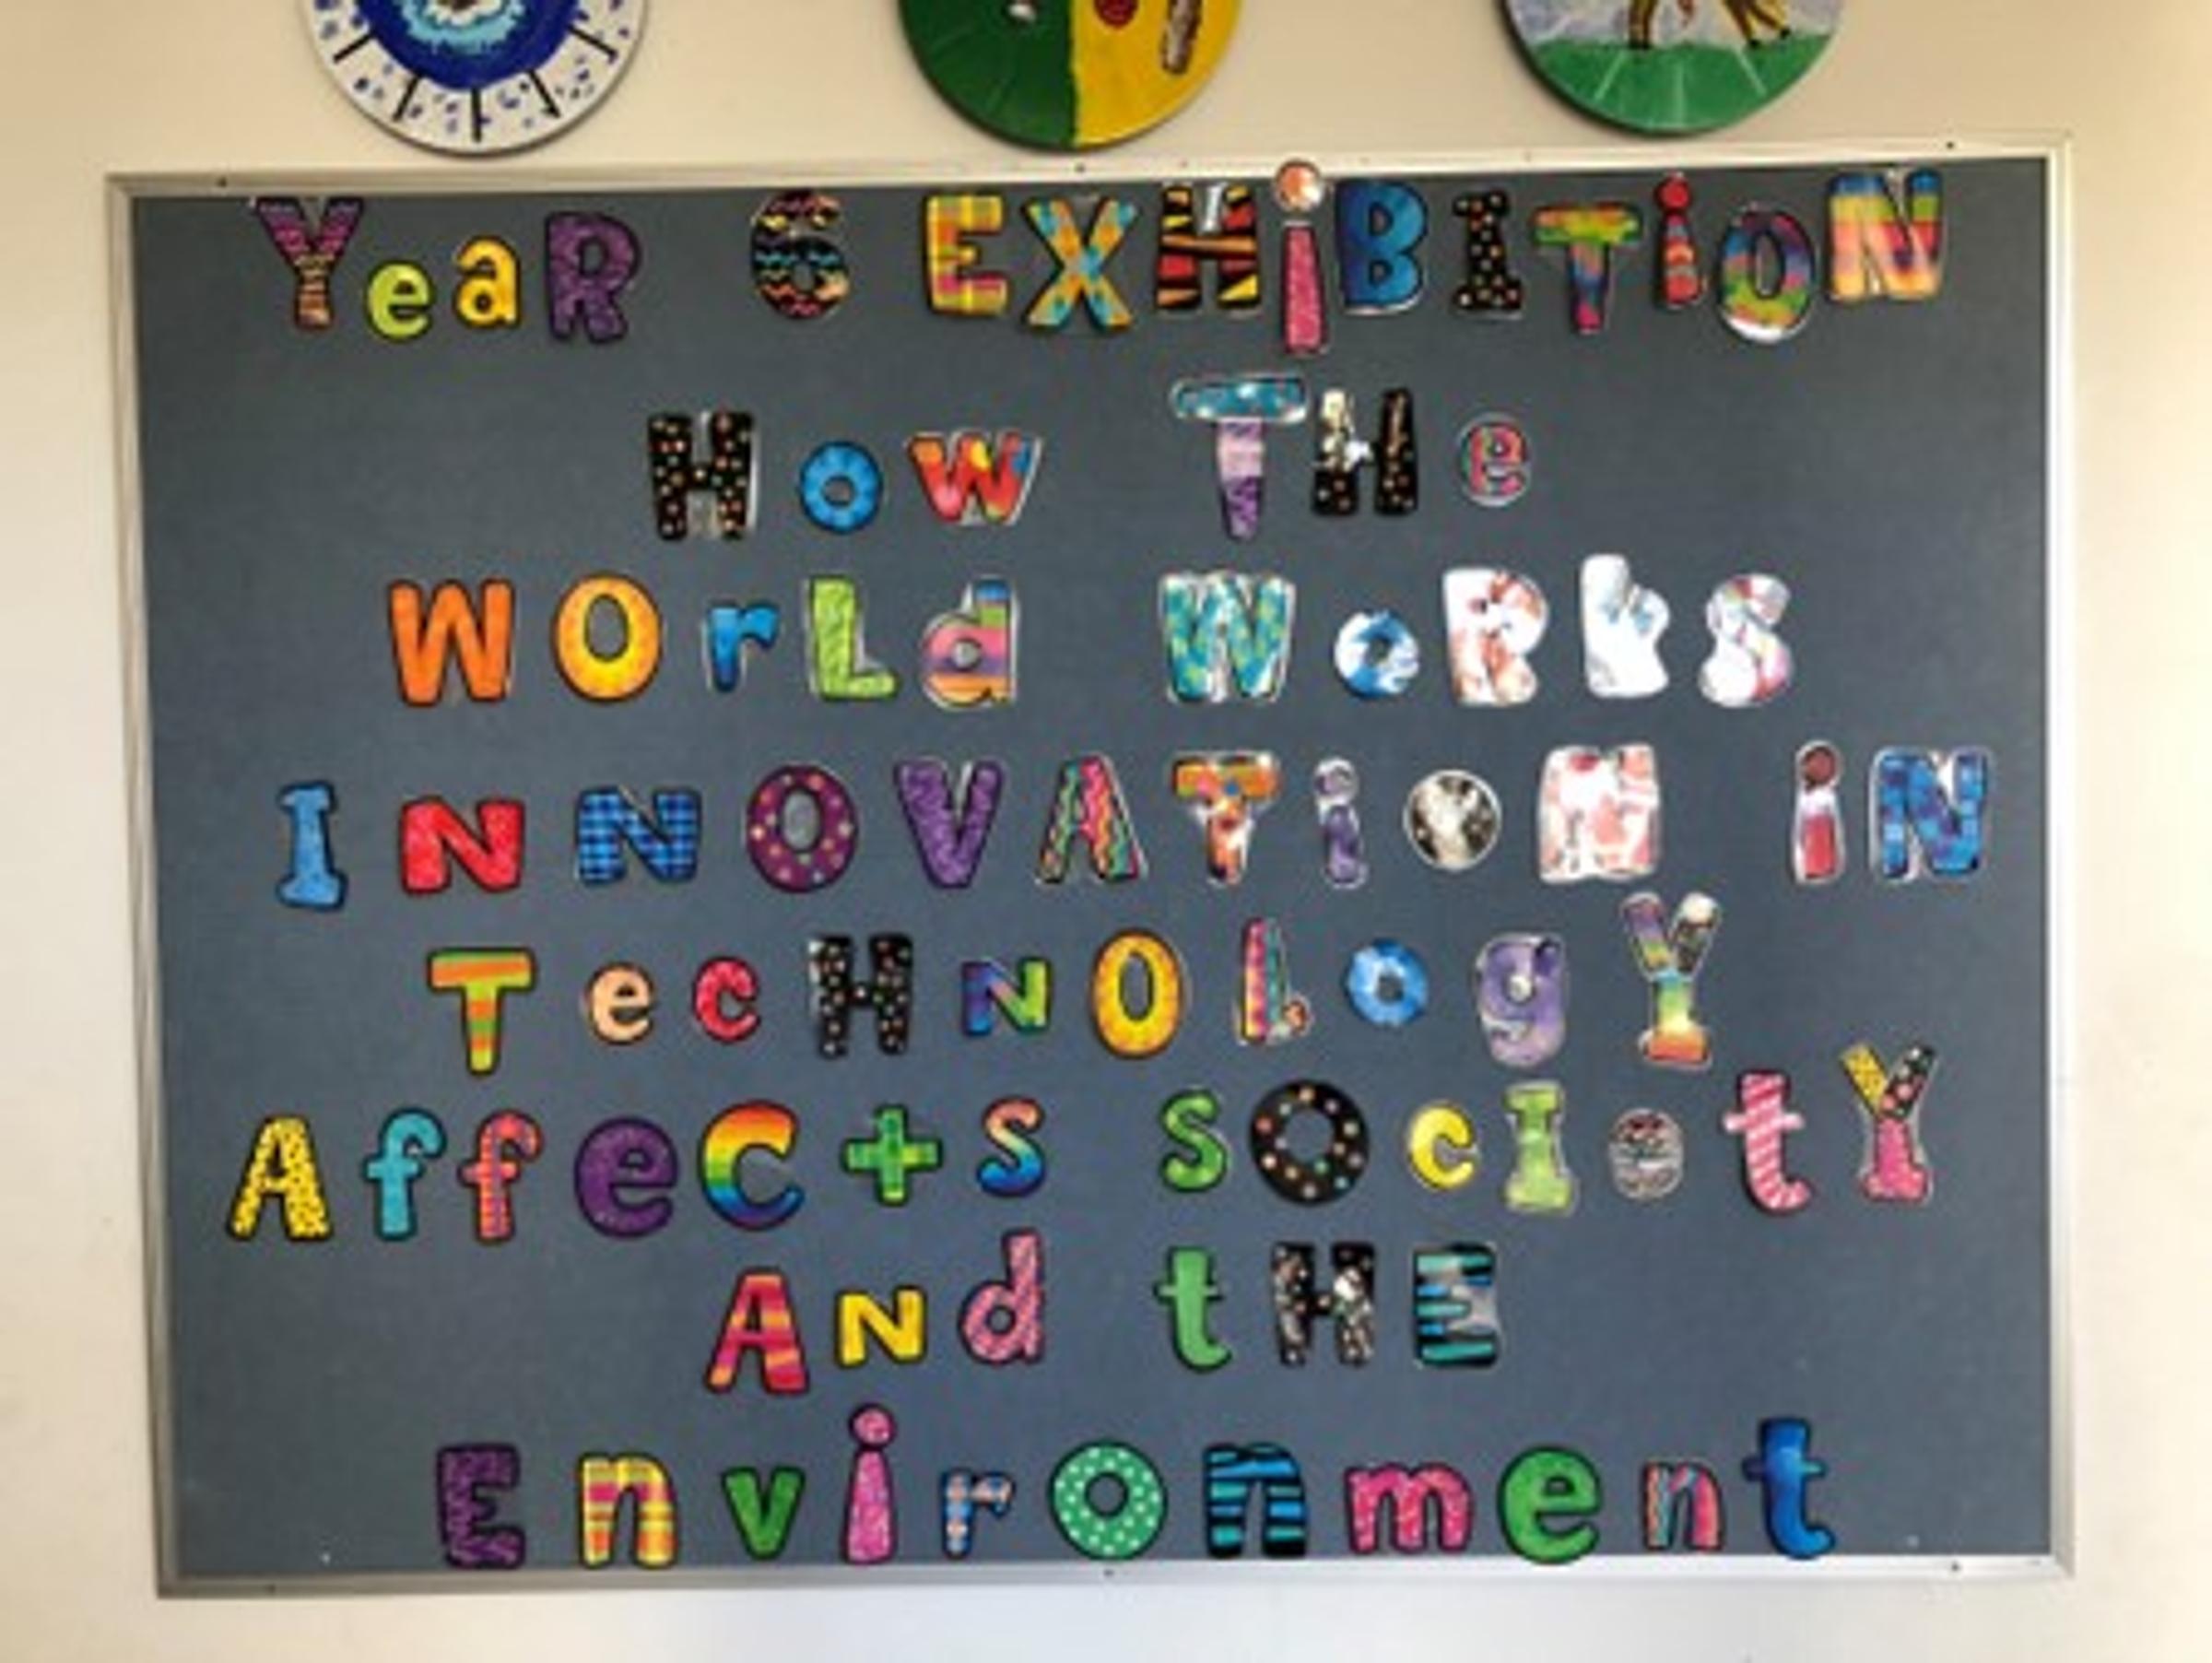 YeaR 6 EXHiBITiON
How THe
WOrLd WoRkS
INNOVATioN iN
TecHNOLogY
AffeCts SOcIetY
ANd tHE
Environment